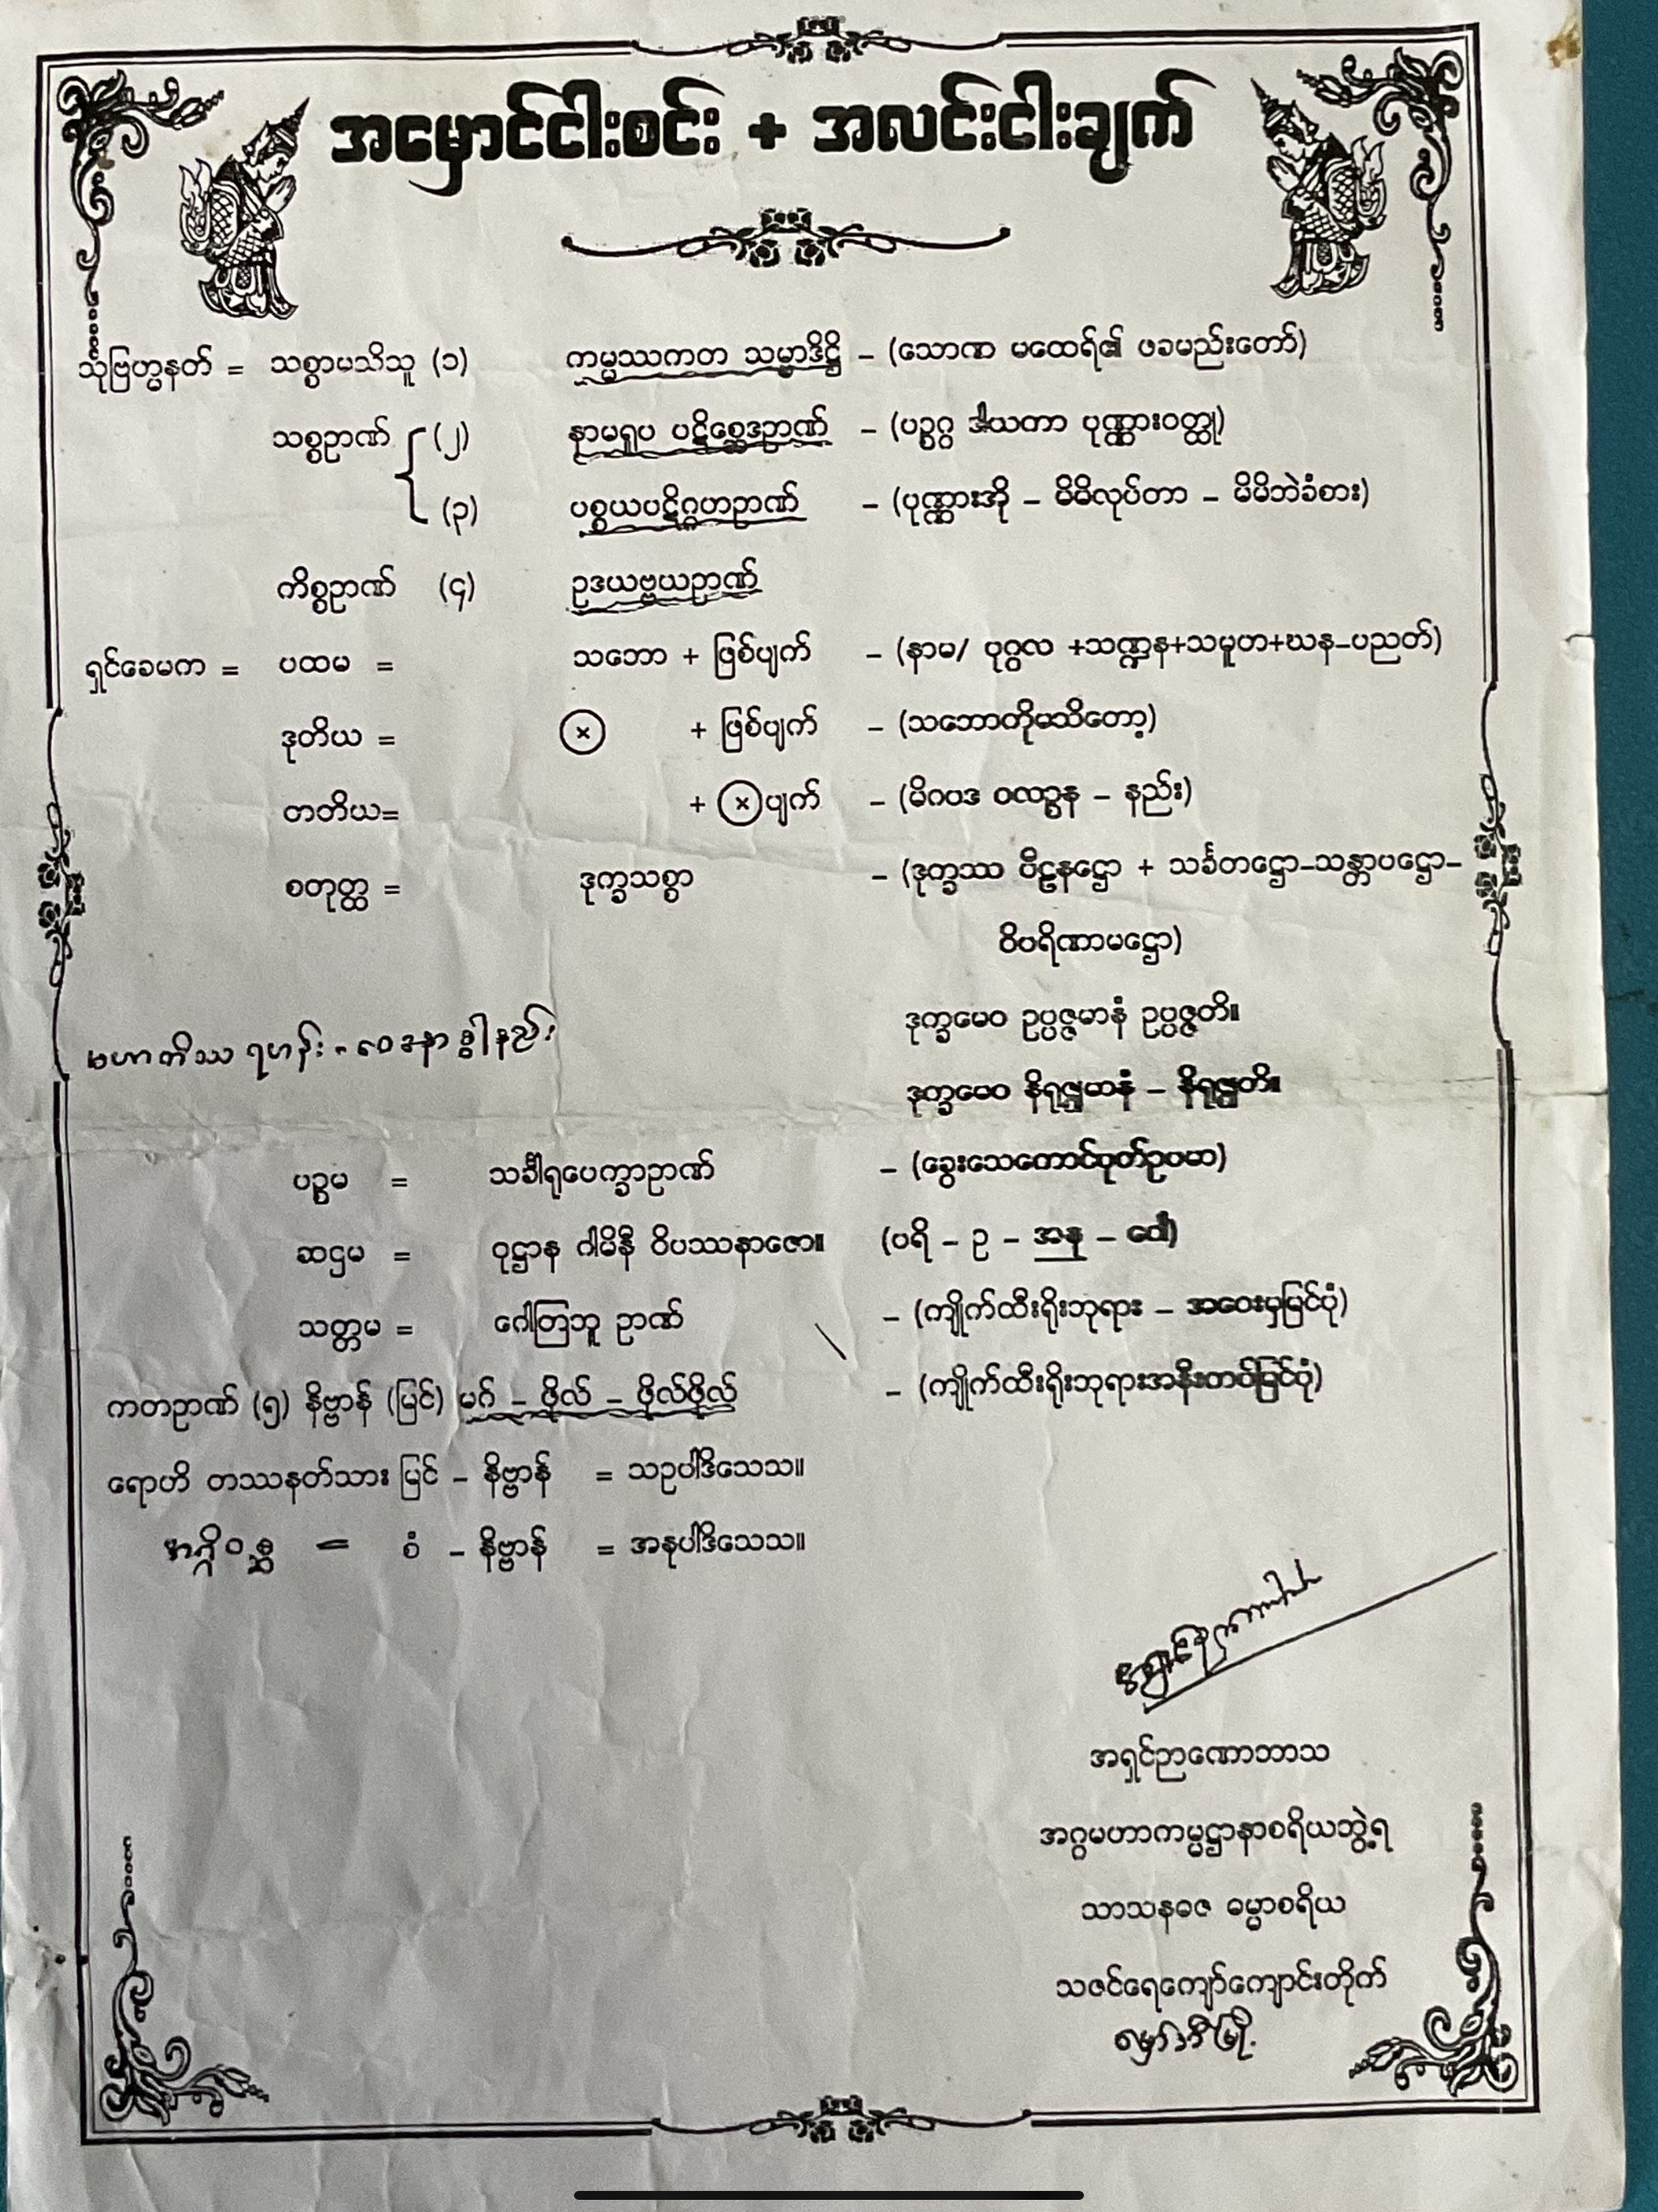 အမှောင်ငါးစင်း + အလင်းငါးချက်
သုံဗြဟ္မနတ် = သစ္စာမသိသူ (၁) ကမ္မဿကတ သမ္မာဒိဋ္ဌိ – (သောဏ မထေရ်၏ ဖခမည်းတော်)
သစ္စဉာဏ် (၂) နာမရူပ ပဋိစ္ဆေဒဉာဏ် – (ပဉ္စဂ္ဂ ဒါယကာ ပုဏ္ဏားဝတ္ထု)
(၃) ပစ္စယပဋိဂ္ဂဟဉာဏ် – (ပုဏ္ဏားအို – မိမိလုပ်တာ – မိမိဘဲခံစား)
ကိစ္စဉာဏ် (၄) ဥဒယဗ္ဗယဉာဏ်
ရှင်ခေမက = ပထမ = သဘော + ဖြစ်ပျက် – (နာမ/ ပုဂ္ဂလ +သဏ္ဍန+သမူဟ+ဃန–ပညတ်)
ဒုတိယ = × + ဖြစ်ပျက် – (သဘောကိုမသိတော့)
တတိယ= + × ပျက် – (မိဂပဒ ဝလဉ္စန – နည်း)
စတုတ္ထ = ဒုက္ခသစ္စာ – (ဒုက္ခဿ ပီဠနဋ္ဌော + သင်္ခတဋ္ဌော–သန္တာပဋ္ဌော–
ဝိပရိဏာမဋ္ဌော)
ဒုက္ခမေဝ ဥပ္ပဇ္ဇမာနံ ဥပ္ပဇ္ဇတိ။
မဟာတိဿ ရဟန်း - ဝေဒနာ နည်း
ဒုက္ခမေဝ နိရုဇ္ဈမာနံ – နိရုဇ္ဈတိ။
ပဉ္စမ = သင်္ခါရုပေက္ခာဉာဏ် – (ခွေးသေကောင်ပုတ်ဥပမာ)
ဆဌမ = ဝုဋ္ဌာန ဂါမိနီ ဝိပဿနာဇော။ (ပရိ – ဥ – အနု – ဂေါ်)
သတ္တမ = ဂေါတြဘူ ဉာဏ် – (ကျိုက်ထီးရိုးဘုရား – အဝေးမှမြင်ပုံ)
ကတဉာဏ် (၅) နိဗ္ဗာန် (မြင်) မဂ် – ဖိုလ် – ဖိုလ်ဖိုလ် – (ကျိုက်ထီးရိုးဘုရားအနီးကပ်မြင်ပုံ)
ရောဟိ တဿနတ်သား မြင် – နိဗ္ဗာန် = သဥပါဒိသေသ။
အဂ္ဂိဝစ္ဆ = စံ – နိဗ္ဗာန် = အနုပါဒိသေသ။
အရှင်ဉာဏောဘာသ
အဂ္ဂမဟာကမ္မဋ္ဌာနာစရိယဘွဲ့ရ
သာသနဓဇ ဓမ္မာစရိယ
သဇင်ရေကျော်ကျောင်းတိုက်
မှော်ဘီမြို့